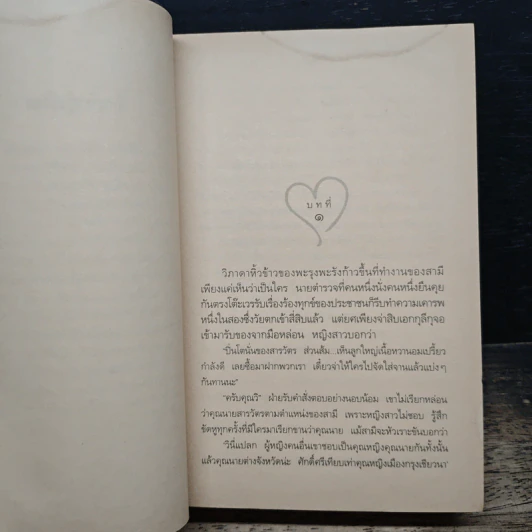 บทที่
๑
วิภาดาหิ้วข้าวของพะรุงพะรังก้าวขึ้นที่ทำงานของสามี
เพียงแค่เห็นว่าเป็นใคร นายตำรวจที่คนหนึ่งนั่งคนหนึ่งยืนคุย
กันตรงโต๊ะเวรรับเรื่องร้องทุกข์ของประชาชนก็รีบทำความเคารพ
หนึ่งในสองซึ่งวัยตกเข้าสี่สิบแล้ว แต่ยศเพียงจ่าสิบเอกกุลีกุจอ
เข้ามารับของจากมือหล่อน หญิงสาวบอกว่า
“ปิ่นโตนั่นของสารวัตร ส่วนส้ม...เห็นลูกใหญ่เนื้อหวานอมเปรี้ยว
กำลังดี เลยซื้อมาฝากพวกเรา เดี๋ยวจ่าให้ใครไปจัดใส่จานแล้วแบ่งๆ
กันทานนะ”
“ครับคุณวิ” ฝ่ายรับคำสั่งตอบอย่างนอบน้อม เขาไม่เรียกหล่อน
ว่าคุณนายสารวัตรตามตำแหน่งของสามี เพราะหญิงสาวไม่ชอบ รู้สึก
ขัดหูทุกครั้งที่มีใครมาเรียกขานว่าคุณนาย แม้สามีจะหัวเราะขันบอกว่า
“วินี่แปลก ผู้หญิงคนอื่นเขาชอบเป็นคุณหญิงคุณนายกันทั้งนั้น
แล้วคุณนายต่างจังหวัดน่ะ ศักดิ์ศรีเทียบเท่าคุณหญิงเมืองกรุงเชียวนา”